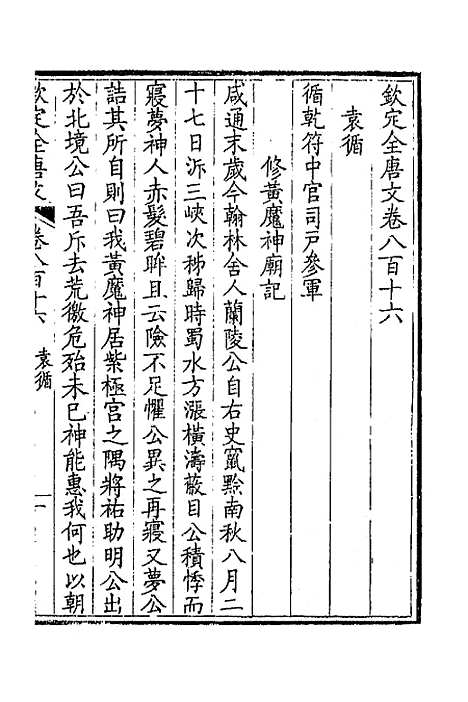 欽定全唐文卷八百十六
袁循
循乾符中官司戸參軍
修黃魔神廟記
咸通末歲今翰林舍人蘭陵公自右史竄黔南秋八月二
十七日泝三峽次秭歸時蜀水方漲橫濤蔽目公積悸而
寢夢神人赤髮碧眸且云險不足懼公異之再寢又夢公
詰其所自則曰我黃魔神居紫極宮之隅將祐助明公出
於北境公曰吾斥去荒徼危殆未已神能惠我何也以朝
欽定全唐文
卷八百十六 袁循 一